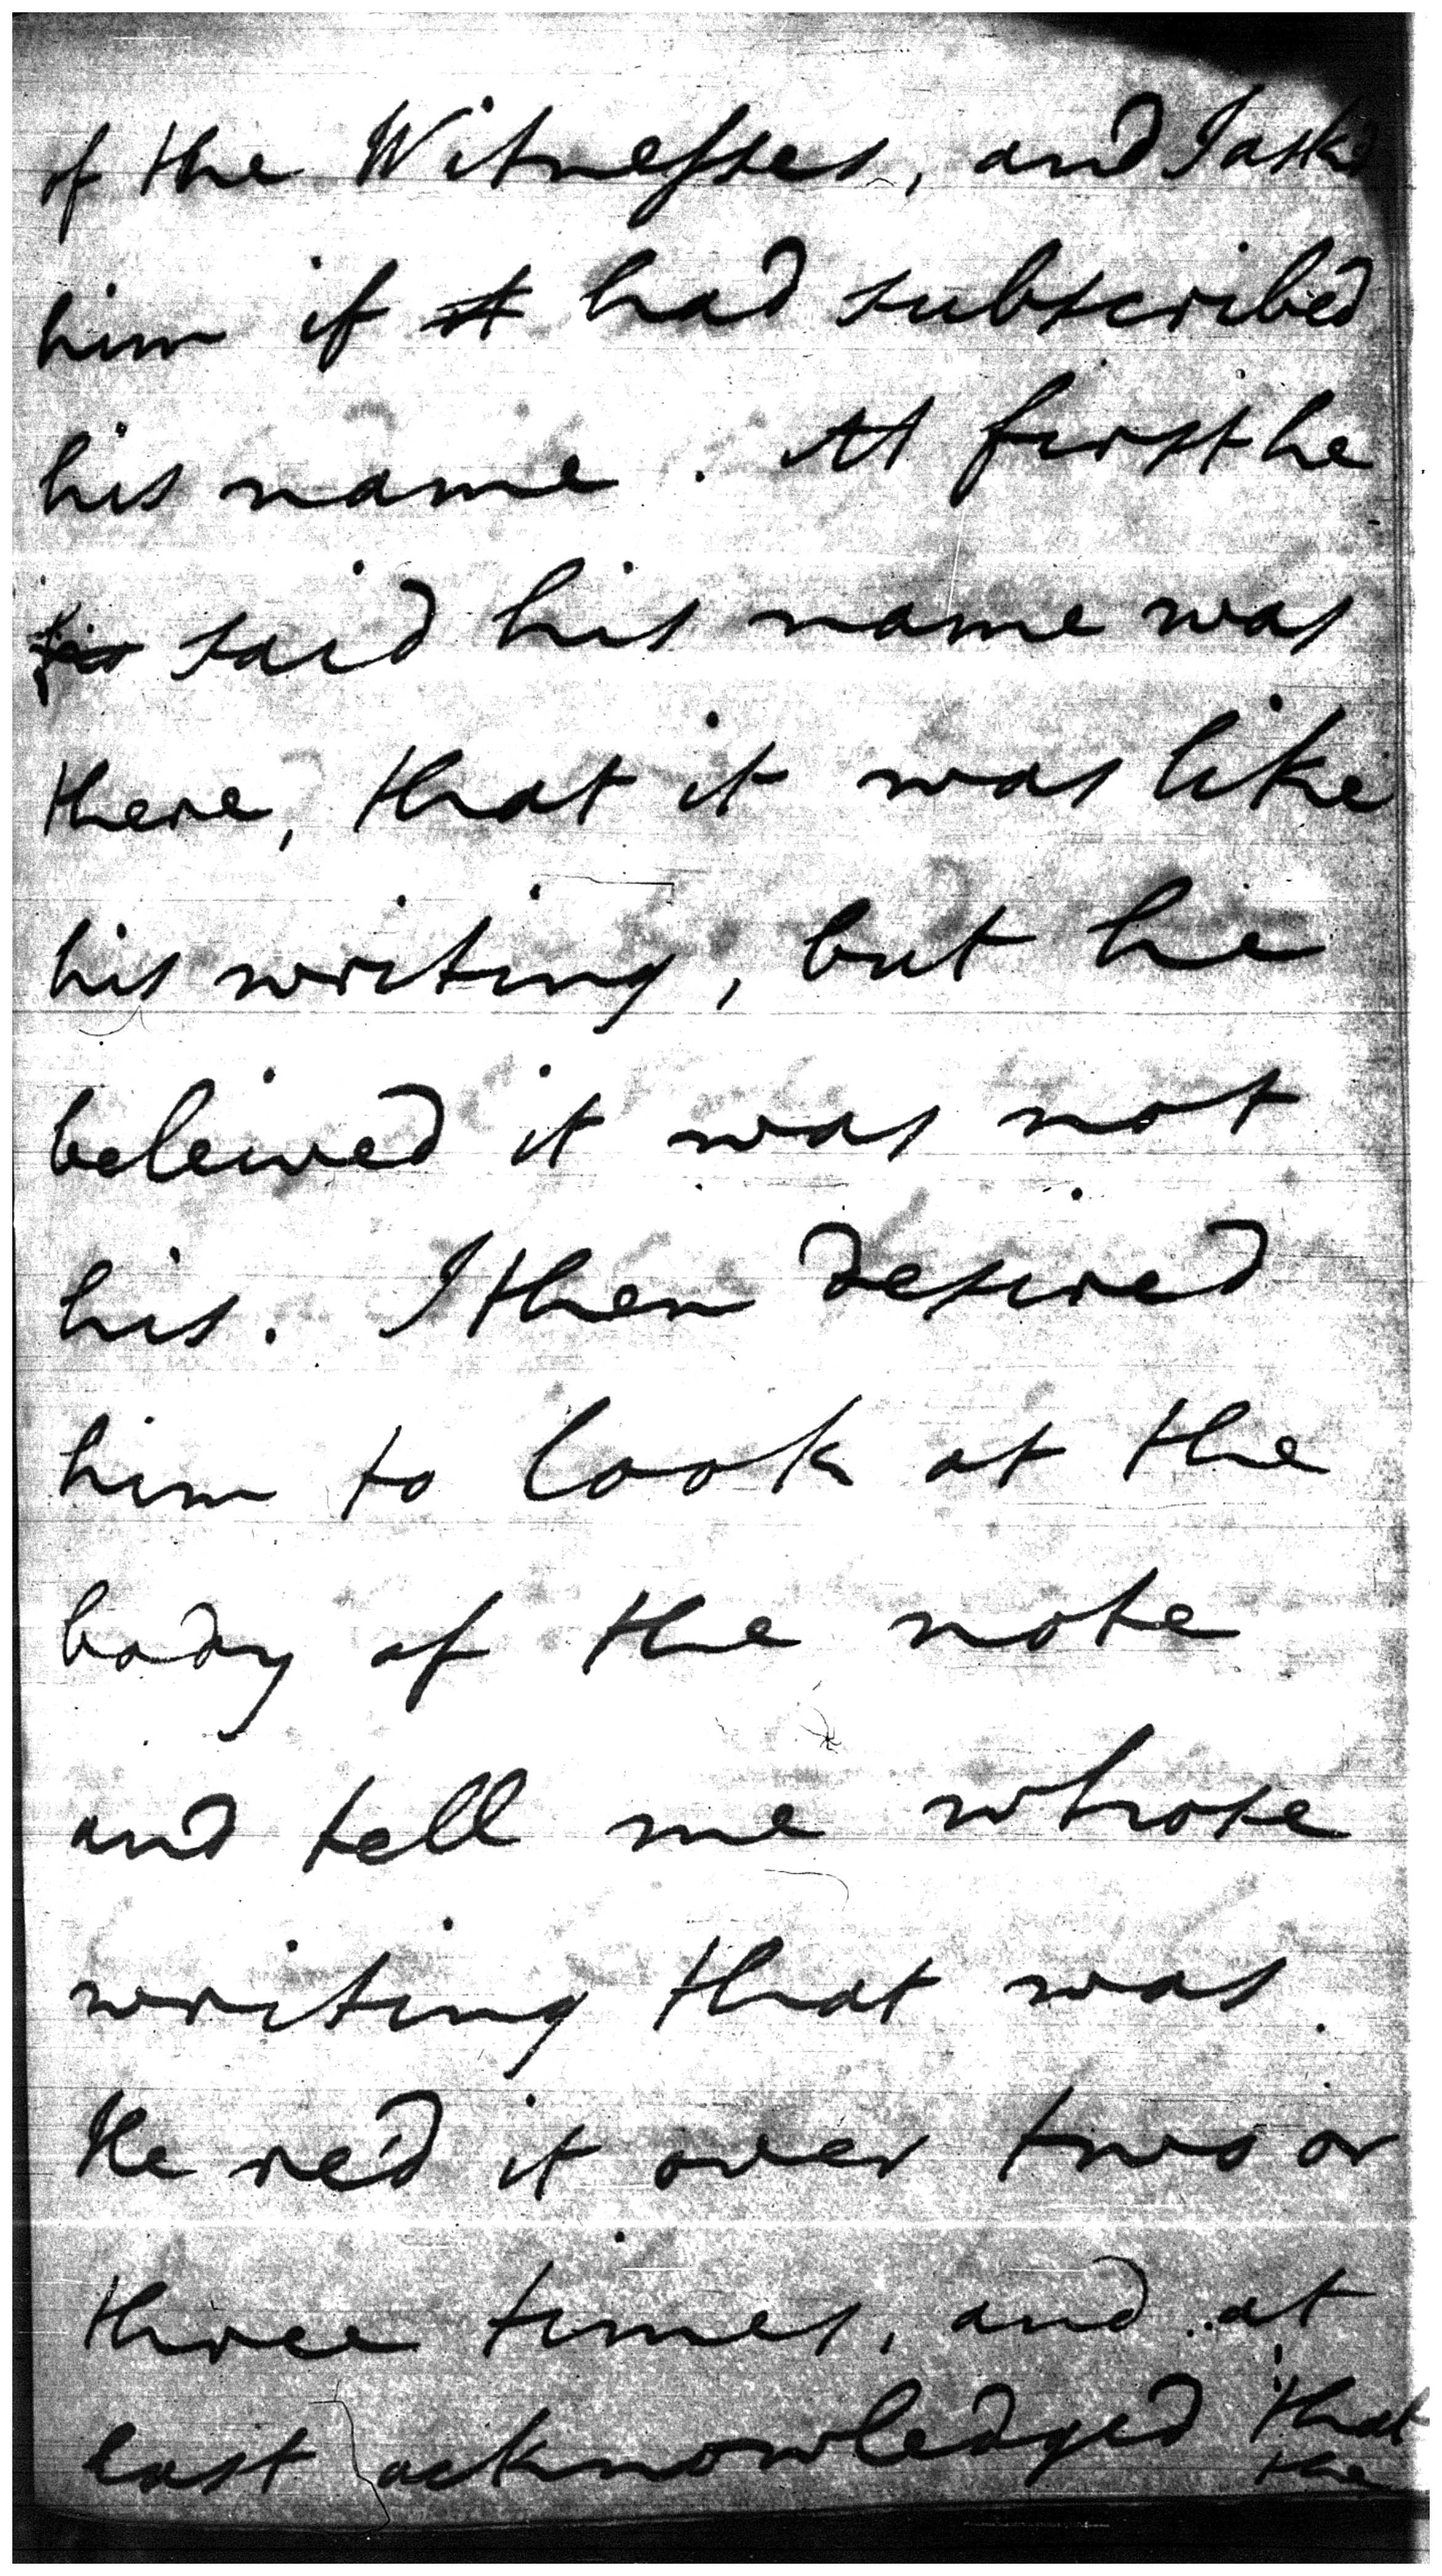 of the Witnesses, and I ask'd
him if had subscribed
his name. At first he
said his name was
there, that it was like
his writing, but he
beleived it was not
his. I then desired
him to look at the
body of the note
and tell me whose
writing that was.
He re'd it over two or
three times, and at
last acknowledged that
the